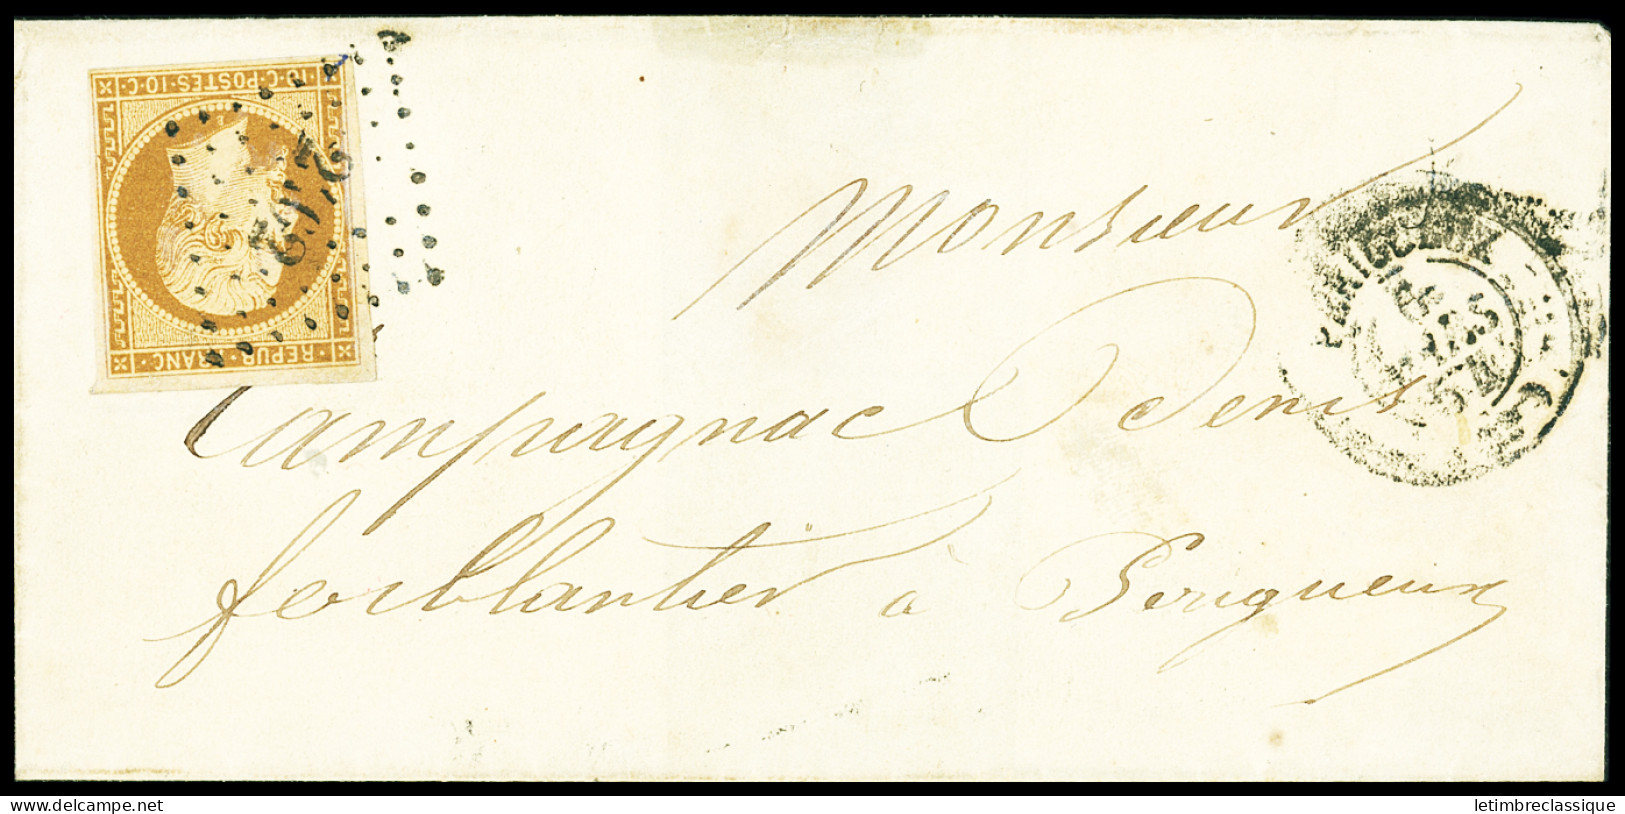 10·C·POSTES·10·C·
REPUB·FRANC·
Monsieur
Campagnac Denis
ferblantier à Perigueux
PERIGUEUX
54
delcampe.net
letimbreclassique